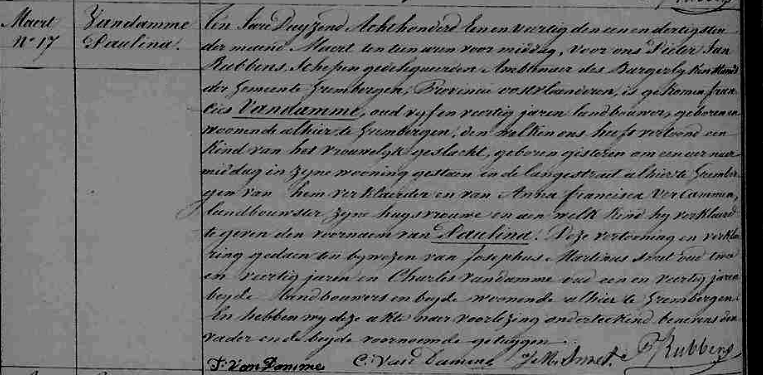 Maert
N° 17
Vandamme
Paulina.
Ten Jare Duyzend Achthonderd een en veertig den een en dertigsten
der maend Maert ten tien uren voor middag, voor ons Pieter Jan
Rubbens, Schepen gedelegueerden Ambtenaer des Burgerlyken Stand
der Gemeente Grembergen, Provincie oostvlaenderen, is gekomen fran-
cies Vandamme, oud vyf en veertig jaren landbouwer, geboren en
woonende alhier te Grembergen, den welken ons heeft vertoond een
kind van het vrouwelyk geslacht, geboren gisteren om een uer naer
middag in zyne wooning gestaen in de langestraet alhier te Grember-
gen van hem verklaerder en van Anna Francisca Vercammen,
landbouwster zyne huysvrouwe en aen welk kind hy verklaerd
te geven den voornaem van Paulina. Deze vertooning en verkla-
ring gedaen ten bywezen van Josephus Martinus Smet oud twee
en veertig jaren en Charles Vandamme oud een en veertig jaren
beyde landbouwers en beyde woonende alhier te Grembergen
En hebben wy deze akte naer voorlezing onderteekend benevens den
vader en de beyde voornoemde getuygen.
F. Van Damme C. Van Damme J M Smet P J Rubbens